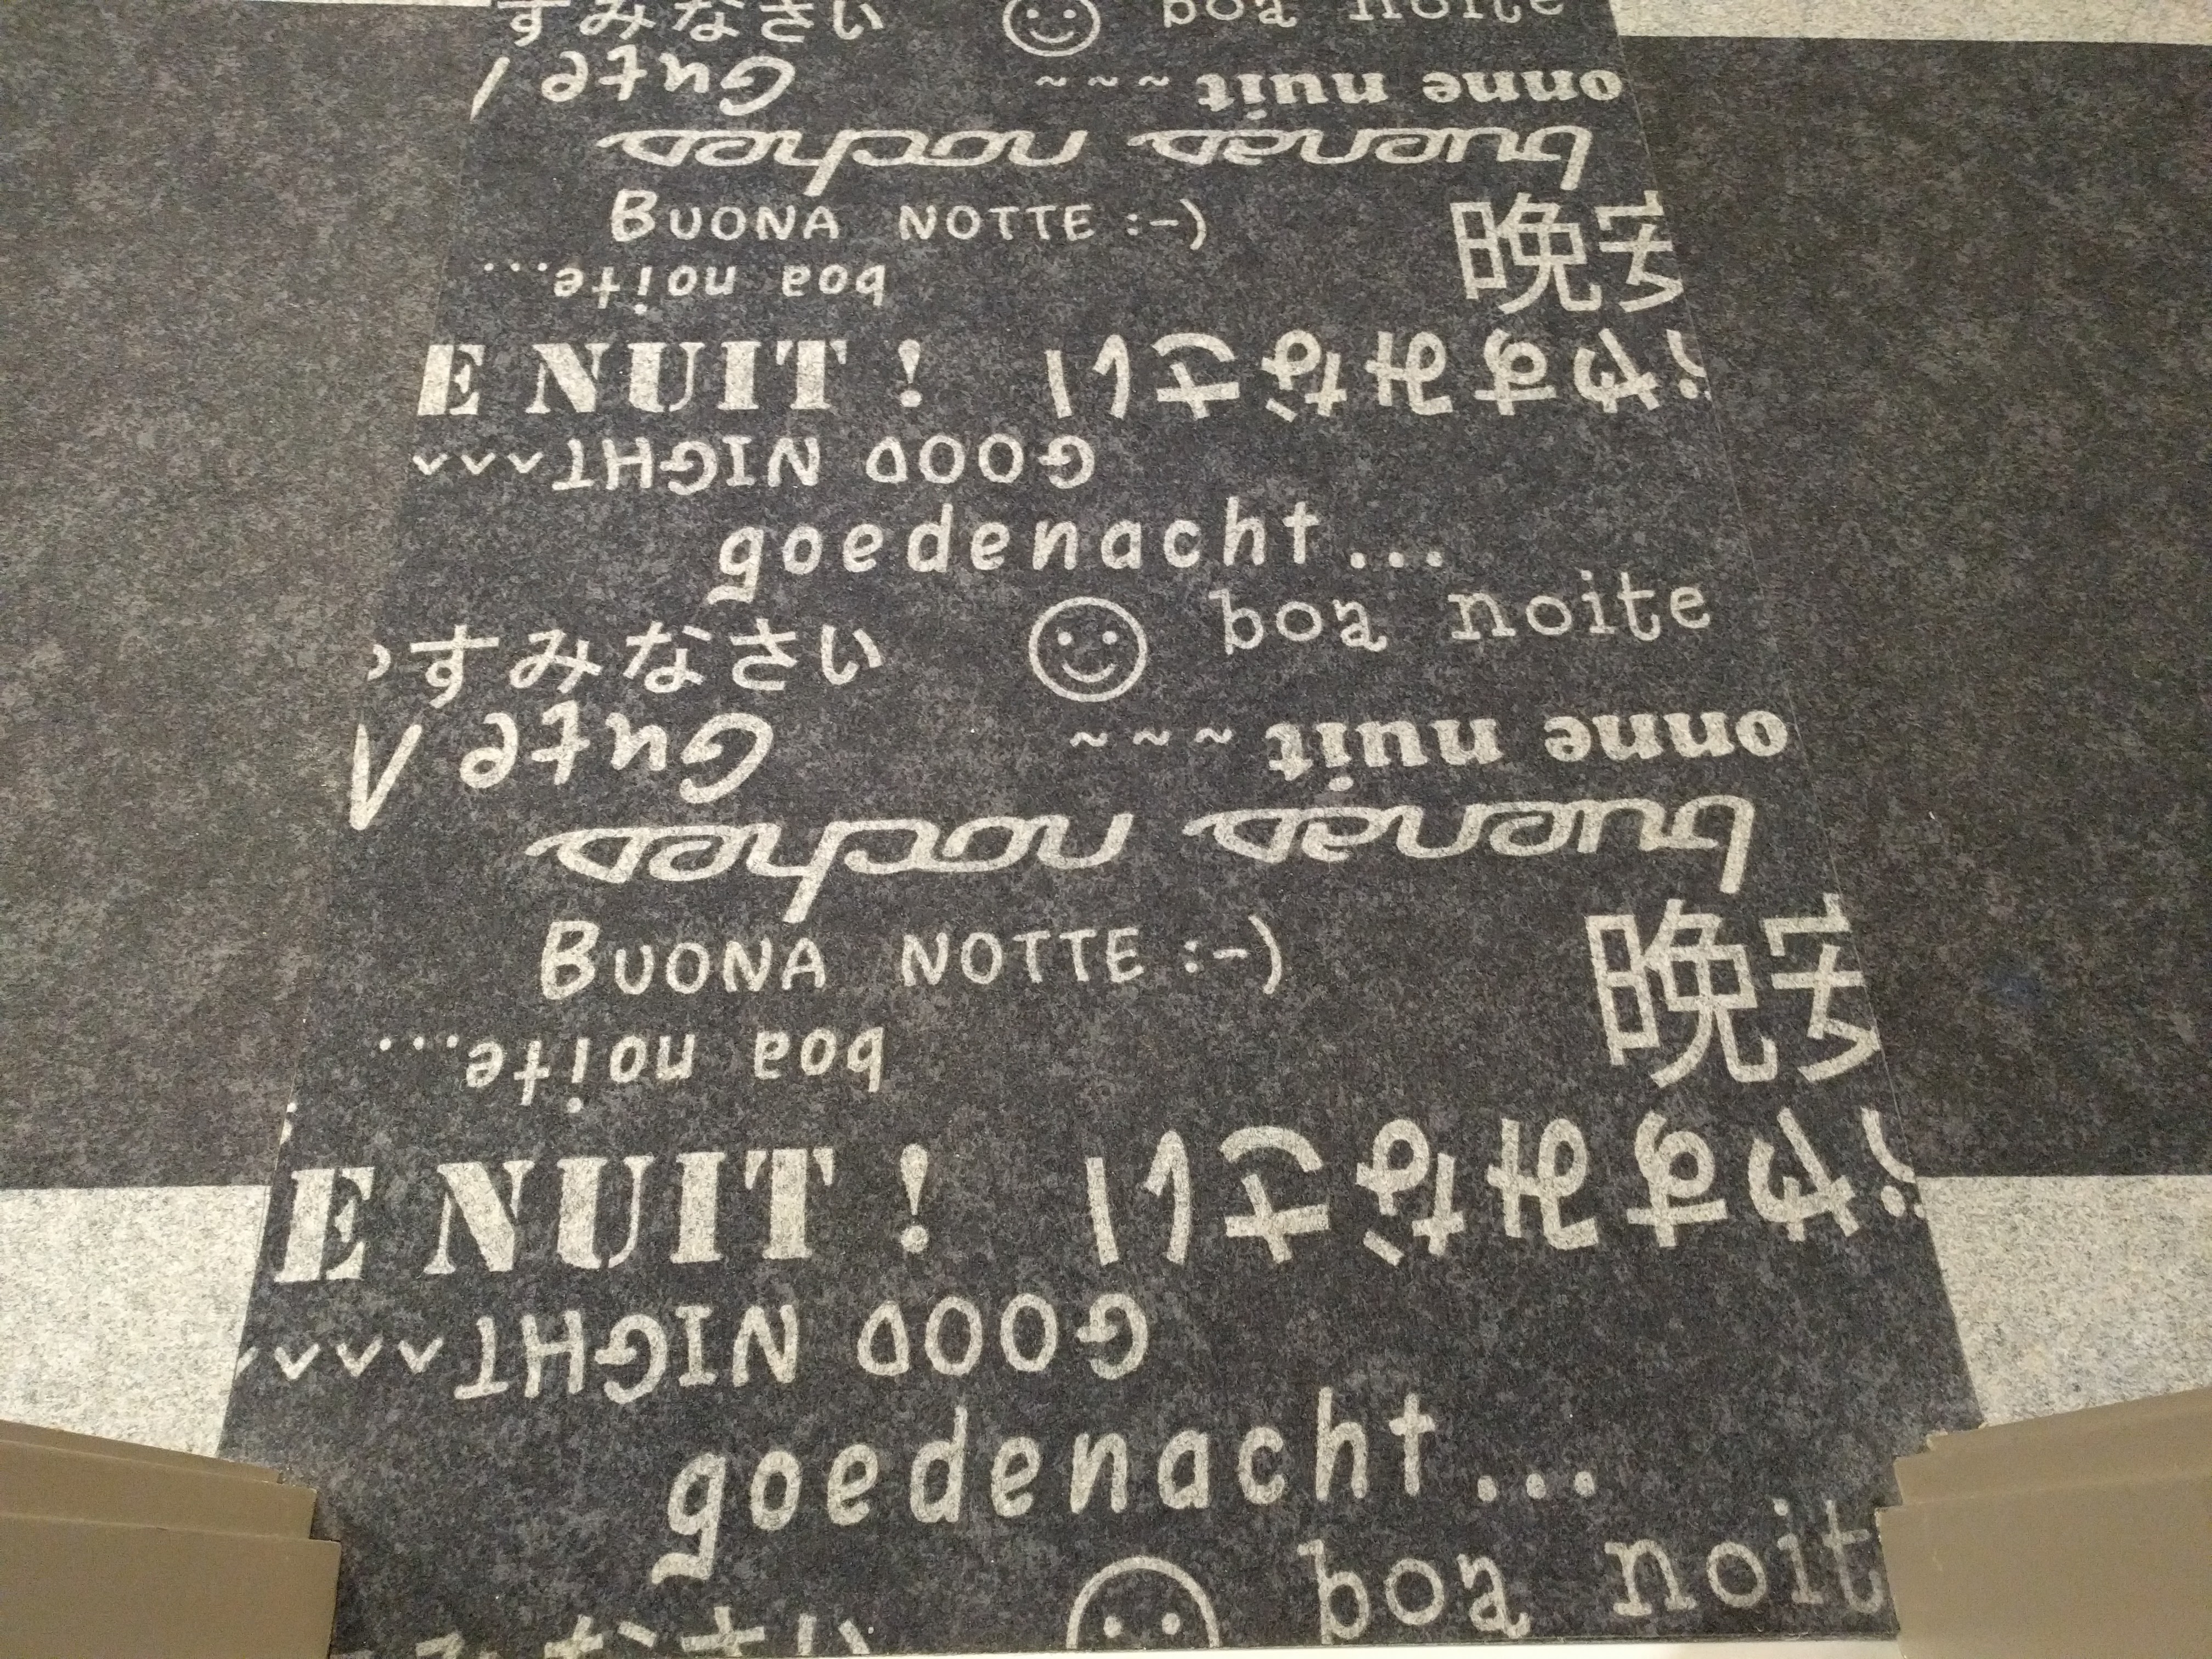 すみなさい boa noite
Gute
onne nuit ~~~
buenas noches
BUONA NOTTE :-)
晩安
boa noite...
E NUIT !
やすみなさい
GOOD NIGHT^^^
goedenacht...
boa noite
すみなさい
Gute
onne nuit ~~~
buenas noches
BUONA NOTTE :-)
晩安
boa noite...
E NUIT !
やすみなさい
GOOD NIGHT^^^^
goedenacht...
boa noit